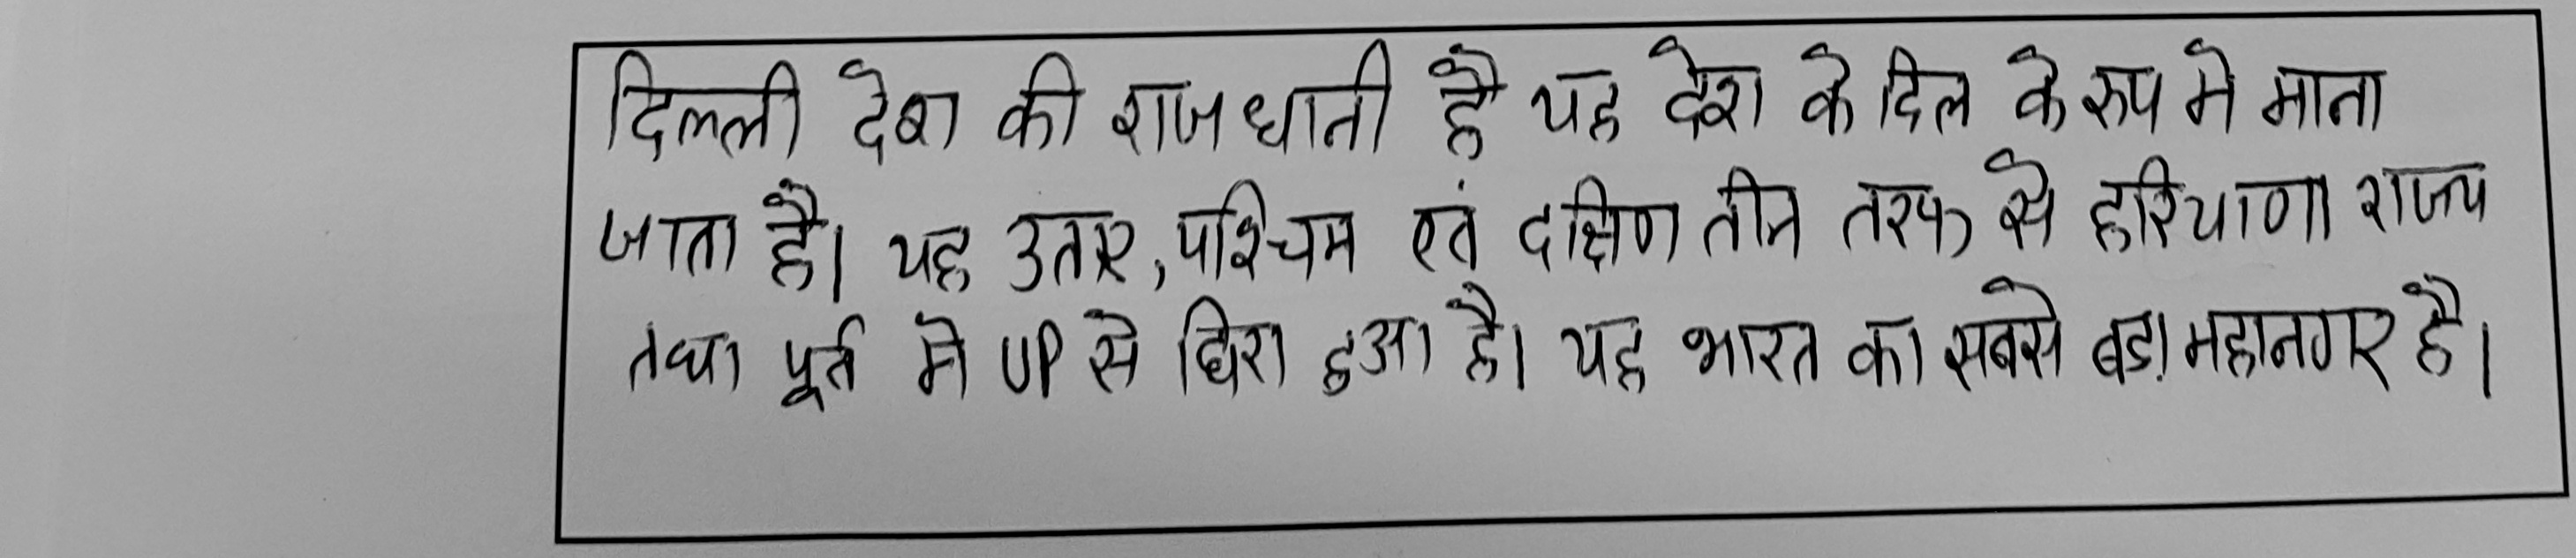 दिल्ली देश की राजधानी है यह देश के दिल के रूप मे माना
जाता है। यह उतर, पश्चिम एवं दक्षिण तीन तरफ से हरियाणा राज्य
तथा पूर्व मे UP से घिरा हुआ है। यह भारत का सबसे बड़ा महानगर है।